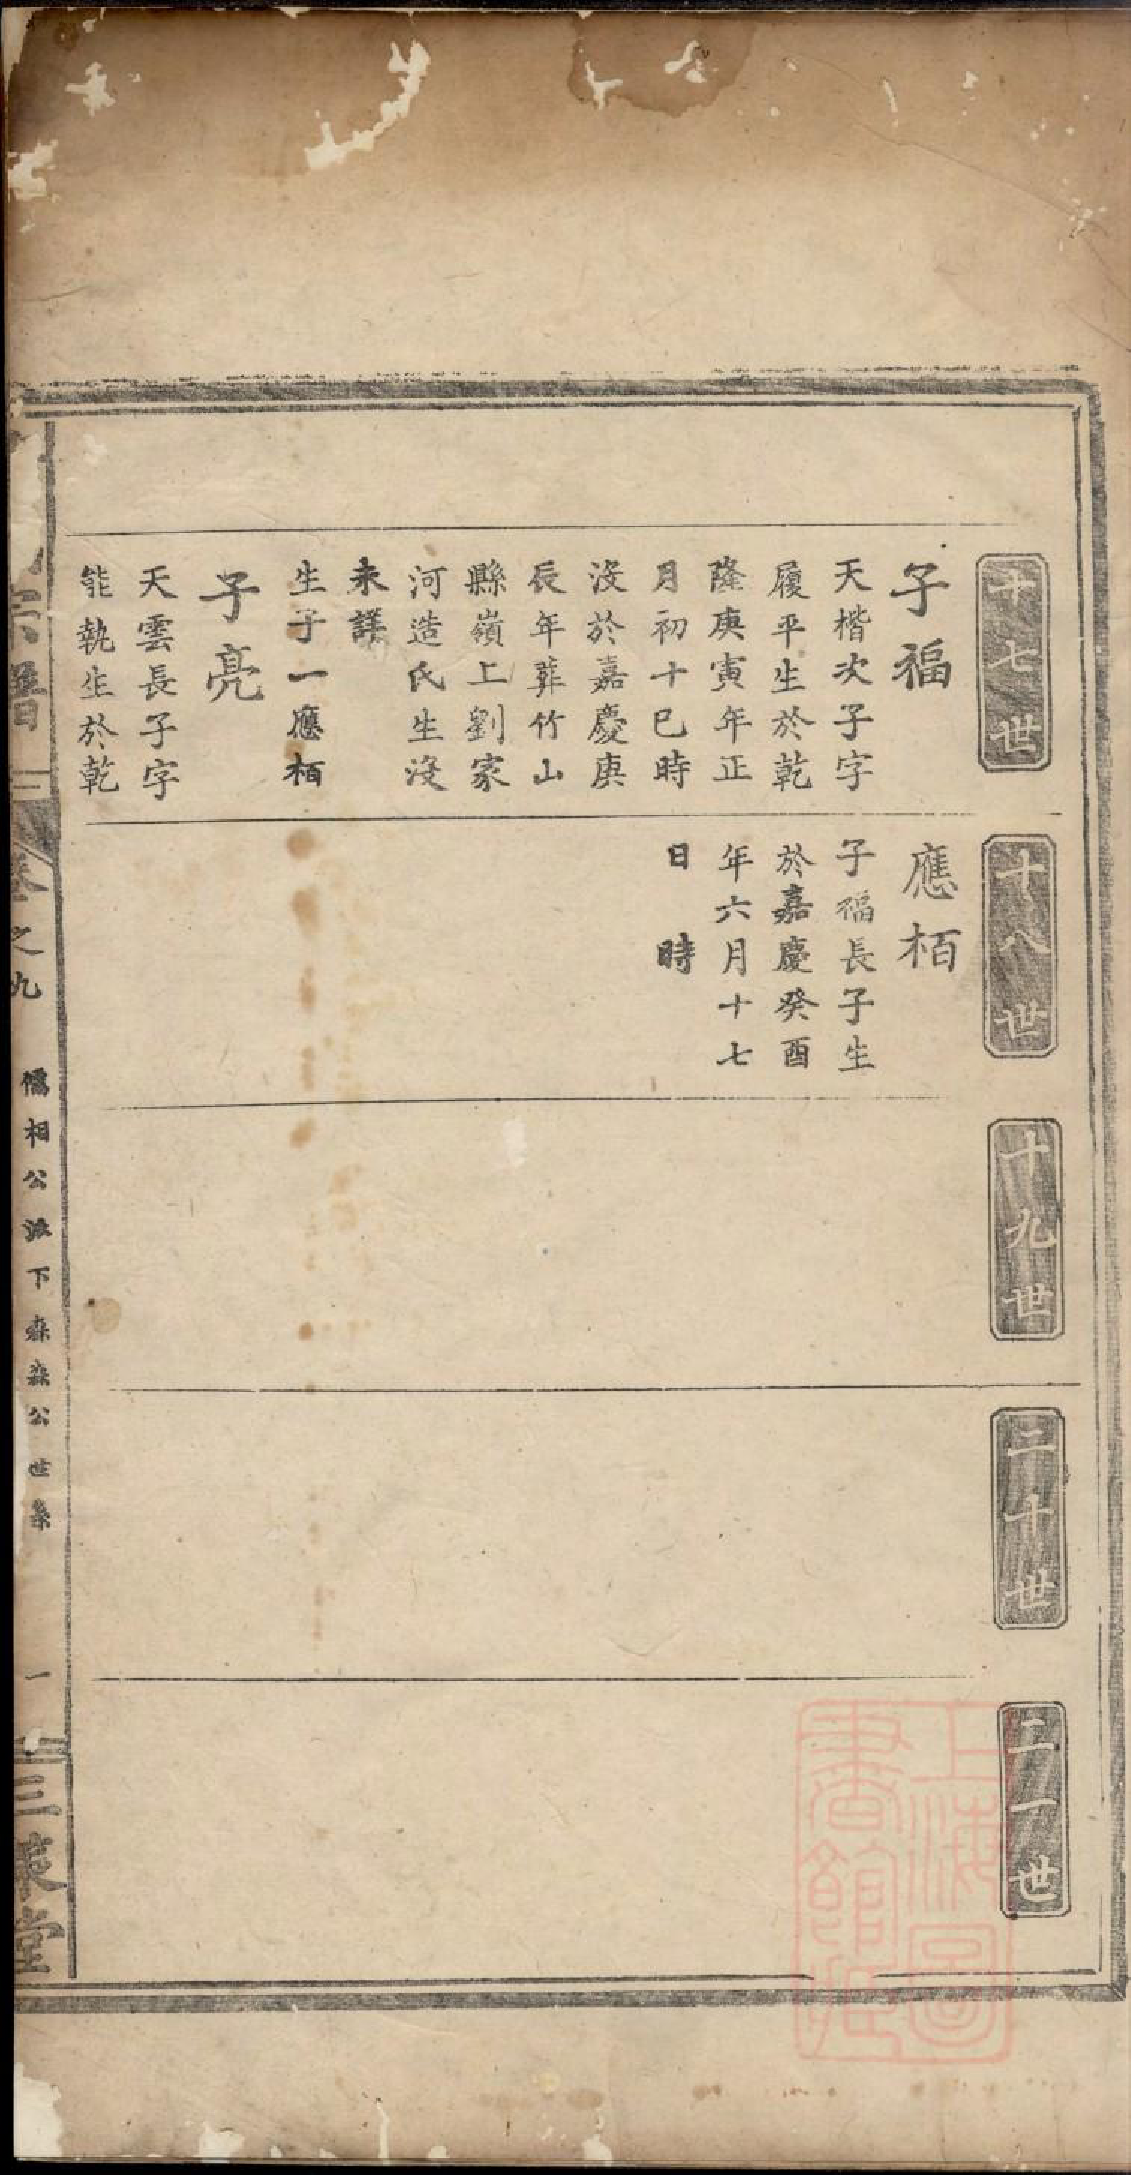 十七世
子福
天楷次子字
履平生於乾
隆庚寅年正
月初十巳時
沒於嘉慶庚
辰年葬竹山
縣嶺上劉家
河造氏生沒
未詳
生子一應栢
子亮
天雲長子字
能執生於乾
十八世
應栢
子福長子生
於嘉慶癸酉
年六月十七
日 時
十九世
二十世
二一世
宗譜
卷之九
儒相公派下森森公世系
一
三槐堂
上海圖
書館藏